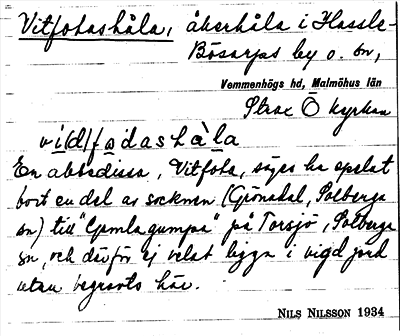 Vitfotashåla, åkerhåla i Hassle-
Bösarps by o. sn,
Vemmenhögs hd, Malmöhus län
Strax Ö kyrkan
vi(d)fødashåla
En abbedissa, Vitfota, säges ha spelat
bort en del av socknen (Grönadal, Solberga
sn) till "Gamlagumpa" på Torsjö, Solberga
sn, och därför ej velat ligga i vigd jord
utan begravts här.
NILS NILSSON 1934